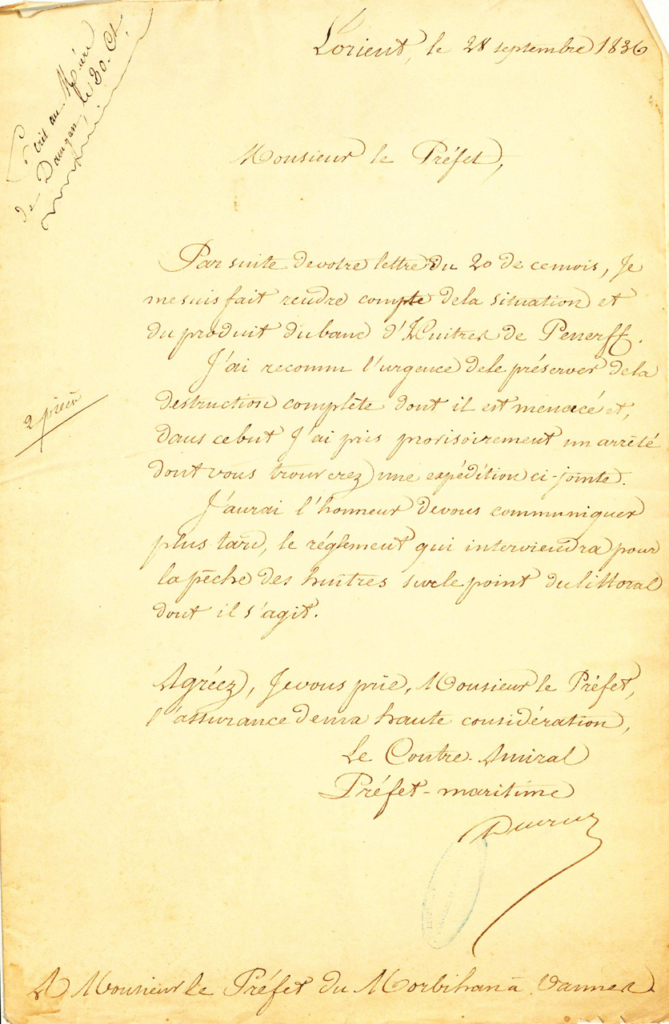 L'orient, le 28 septembre 1836
Ecrit au Maire
de Damgan, le 30. Ct.
Monsieur le Préfet,
Par suite de votre lettre du 20 de ce mois, Je
me suis fait rendre compte de la situation et
du produit du banc d'Huitres de Penerff.
J'ai reconnu l'urgence de le préserver de la
destruction complète dont il est menacé et,
dans ce but J'ai pris provisoirement un arrêté
dont vous trouverez une expédition ci-jointe.
2 pièces
J'aurai l'honneur de vous communiquer
plus tard, le réglement qui interviendra pour
la pêche des huîtres sur le point du littoral
dont il s'agit.
Agréez, Je vous prie, Monsieur le Préfet,
l'assurance de ma haute considération,
Le Contre-Amiral
Préfet-maritime
A Monsieur le Préfet du Morbihan à Vannes.